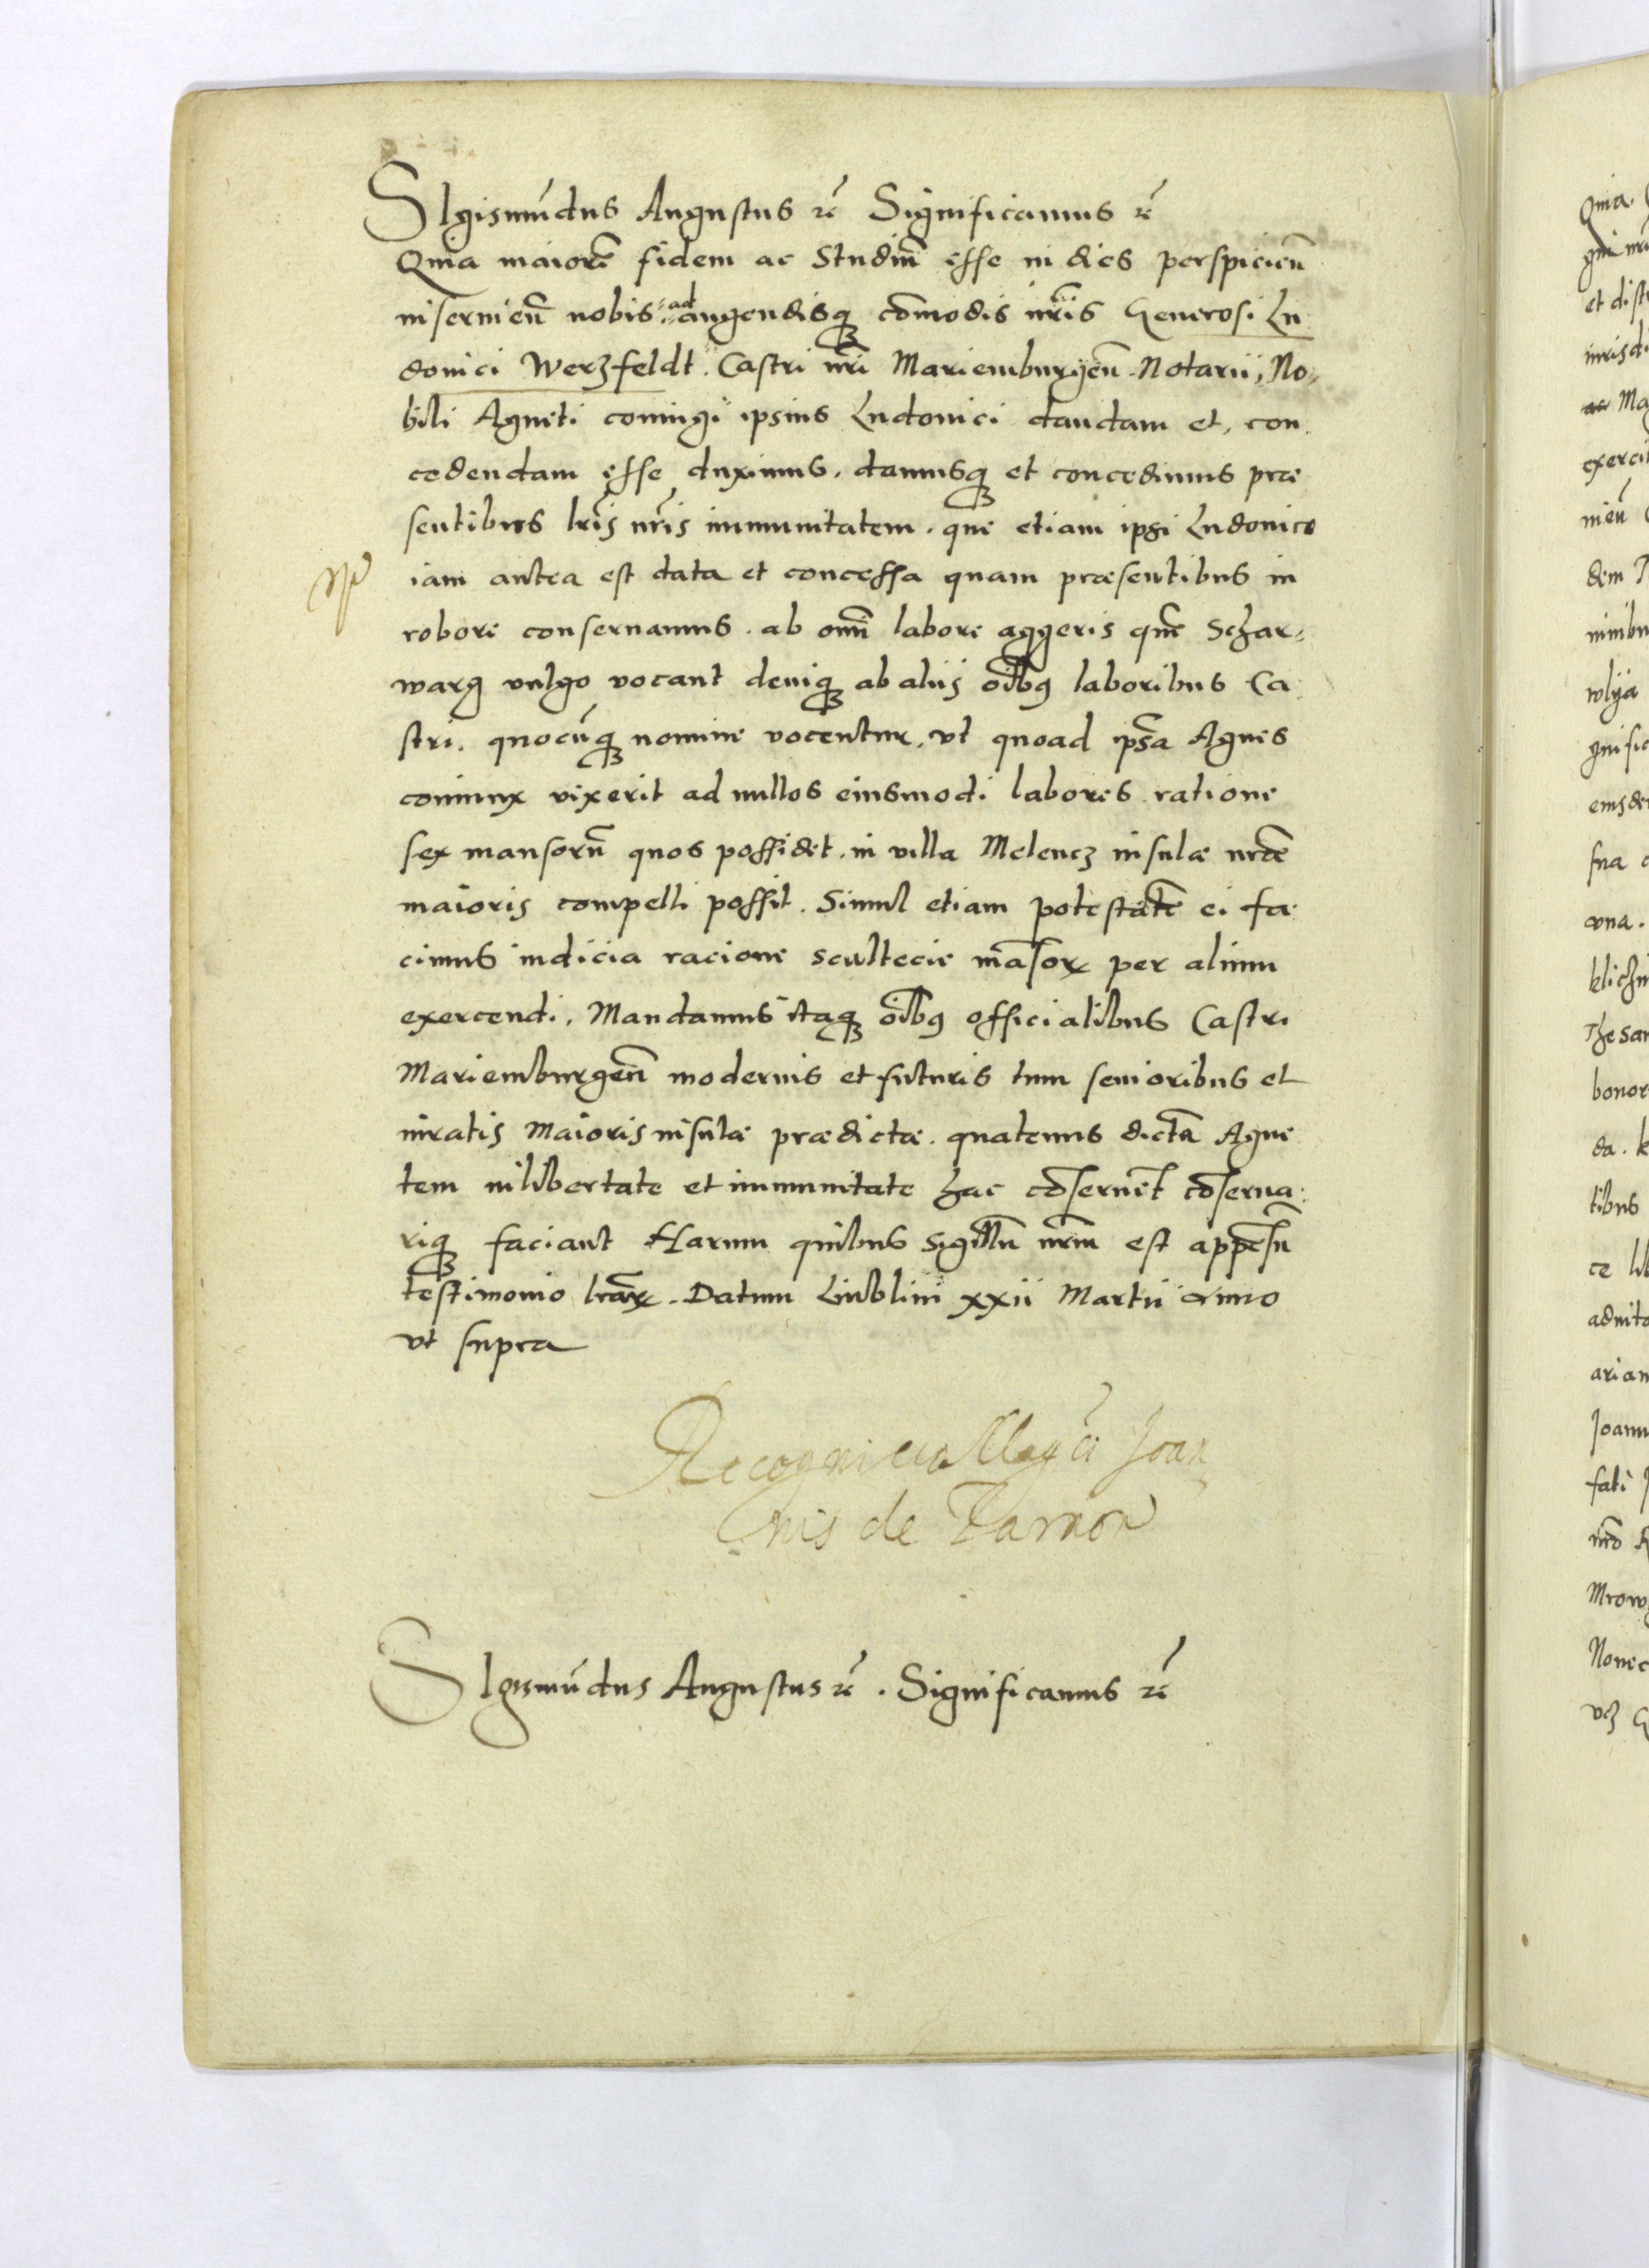 SIgismūdus Augustus rc̄ Significamus rc̄
Quia maiorē fidem ac Studiū esse in dies perspicieñ
inservieñ nobis ad augendisq; cōmodis nr̄is Generosi Lu
dovici Werzfeldt. Castri nr̄i Mariemburgeñ. Notarii, No,
bili Agneti coniugi ipsius Ludovici dandam et, con
cedendam esse duximus. damusq; et concedimus præ
sentibus lr̄is nr̄is immunitatem. que etiam ipsi Ludovico
iam antea est data et concessa quam præsentibus in
robore conservamus. ab omī labore aggeris quē Schar,
warg vulgo vocant deniq; ab aliis oībg laboribus Ca
stri. quocūq; nomine vocentur, vt quoad ipsa Agnes
coniunx vixerit ad nullos eiusmodi labores ratione
sex mansorū quos possidet. in villa Melencz insulæ nr̄æ
maioris compelli possit. Simul etiam potestatē ei fa
cimus iudicia racione scultecie māsor̨ per alium
exercendi. Mandamus itaq; oībg officialibus Castri
Mariemburgeñ modernis et futuris tum senioribus et
iuratis Maioris insulæ prædictæ. quatenus dictā Agne
tem in libertate et immunitate hac cōservēt cōserva:
riq; faciant Harum quibus Sigillū nr̄m est appēsū
testimonio lr̄ar̨. Datum Liublini xxii Martii Anno
vt supra
Recognicio Mag̃ci Joan
nis de Tarnow
SIgismūdus Augustus rc̄. Significamus rc̄